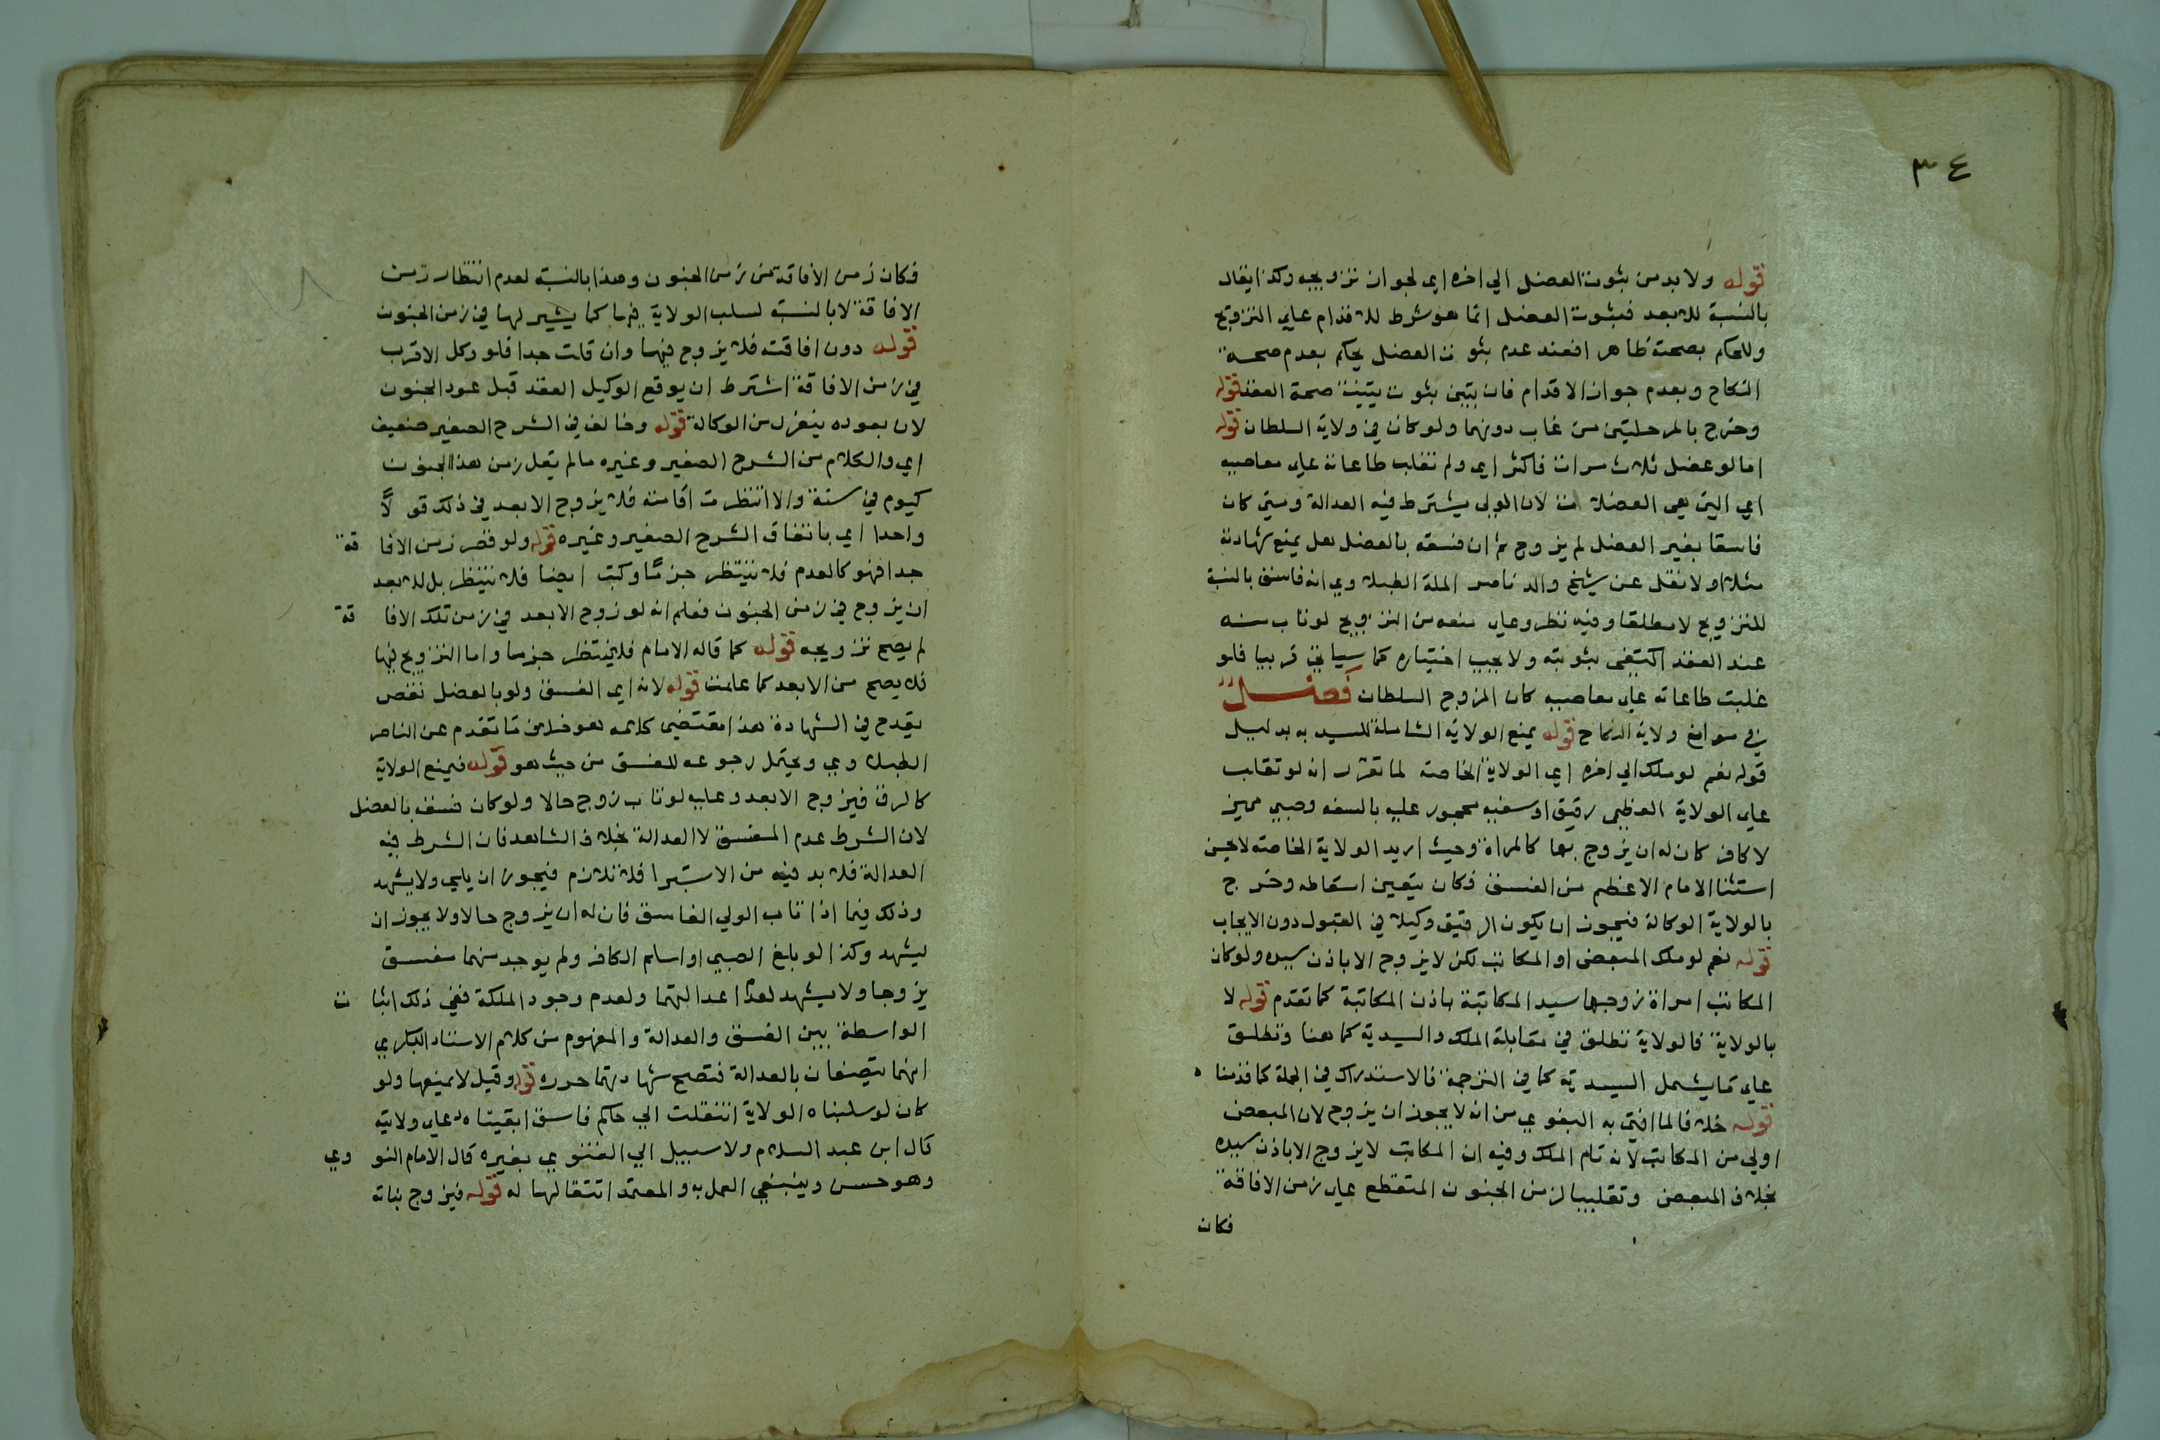 ٣٤
قوله ولا بد من ثبوت العضل الي اخره اي لجواز تزويجه وكذا يقال
بالنسبة للابعد فثبوت العضل انما هو شرط للاقدام علي التزويج
وللحكم بصحته ظاهرا فعند عدم ثبوت العضل يحكم بعدم صحة
النكاح وبعدم جواز الاقدام فان تبين ثبوت يتبين صحة العقد قوله
وخرج بالمرحلتين من غاب دونهما ولو كان في ولاية السلطان قوله
اما لو عضل ثلاث مرات فاكثر اي ولم تغلب طاعاته علي معاصيه
اي التي هي العضلات لان الولي يشترط فيه العدالة ومتي كان
فاسقا بغير العضل لم يزوج ثم ان فسقه بالعضل هل يمنع شهادته
مثلا او لا نقل عن شيخ والد ناصر الملة الطبلاوي انه فاسق بالنسبة
للتزويج لا مطلقا وفيه نظر وعلي منعه من التزويج لو تاب منه
عند العقد اكتفي بتوبته ولا يجب اختباره كما سياتي قريبا فلو
غلبت طاعاته علي معاصيه كان المزوج السلطان فصل
في موانع ولاية النكاح قوله يمنع الولاية الشاملة للسيد به بدليل
قوله نعم لو ملك الي اخره اي الولاية الخاصة لما تقرر انه لو تغلب
علي الولاية العظمي رقيق او سفيه محجور عليه بالسفه وصبي مميز
لا كافر كان له ان يزوج بها كالمراة وحيث اريد الولاية الخاصة لا يحسن
استثنا الامام الاعظم من الفسق فكان يتعين اسقاطه وخرج
بالولاية الوكالة فيجوز ان يكون الرقيق وكيلا في القبول دون الايجاب
قوله نعم لو ملك المبعض او المكاتب لكن لا يزوج الا باذن سيده ولو كان
المكاتب امراة زوجها سيد المكاتبة باذن المكاتبة كما تقدم قوله لا
بالولاية فالولاية تطلق في مقابلة الملك والسيدية كما هنا وتطلق
علي ما يشمل السيدية كما في الترجمة فالاستدراك في الجملة كما قدمنا ه
قوله خلافا لما افتي به البغوي من انه لا يجوز ان يزوج لان المبعض
اولي من المكاتب لانه تام الملك وفيه ان المكاتب لا يزوج الا باذن سيده
بخلاف المبعض وتغليبا لزمن الجنون المتقطع علي زمن الافاقة
فكان
فكان زمن الافاقة من زمن الجنون وهذا بالنسبة لعدم انتظار زمن
الافاقة لا بالنسبة لسلب الولاية فيها كما يشير لها في زمن الجنون
قوله دون افاقته فلا يزوج فيهما وان قلت جدا فلو وكل الاقرب
في زمن الافاقة اشترط ان يوقع الوكيل العقد قبل عود الجنون
لان بعوده ينعزل من الوكالة قوله وخالف في الشرح الصغير ضعيف
اي والكلام من الشرح الصغير وغيره ما لم يقل زمن هذا الجنون
كيوم في سنة والا انتظرت افاقته فلا يزوج الابعد في ذلك قولا
واحدا اي باتفاق الشرح الصغير وغيره قوله ولو قصر زمن الافا قة
جدا فهو كالعدم فلا ينتظر جزما وكتب ايضا فلا ينتظر بل للابعد
ان يزوج في زمن الجنون فعلم انه لو زوج الابعد في زمن تلك الافا قة
لم يصح تزويجه قوله كما قاله الامام فلا ينتظر جزما واما التزويج فيها
فلا يصح من الابعد كما علمت قوله لانه اي الفسق ولو بالعضل نقص
يقدح في الشهادة هذا مقتضي كلامه هو خلاف ما تقدم عن الناصر
الطبلاوي ويحتمل رجوعه للفسق من حيث هو قوله فيمنع الولاية
كالرق فيزوج الابعد وعليه لو تاب زوج حالا ولو كان فسقه بالعضل
لان الشرط عدم المفسق لا العدالة بخلاف الشاهد فان الشرط فيه
العدالة فلا بد فيه من الاستبرا فلا تلازم فيجوز ان يلي ولا يشهد
وذلك فيما اذا تاب الولي الفاسق فان له ان يزوج حالا ولا يجوز ان
يشهد وكذا لو بلغ الصبي او اسلم الكافر ولم يوجد منهما مفسق
يزوجا ولا يشهد لعدم عدالتهما ولعدم وجود الملكة ففي ذلك اثبا ت
الواسطة بين الفسق والعدالة والمفهوم من كلام الاستاذ البكري
انهما يتصفان بالعدالة فتصح شهادتهما حرره قوله وقيل لا يمنعها ولو
كان لو سلبناه الولاية انتقلت الي حاكم فاسق ابقيناه علي ولايته
قال ابن عبد السلام ولا سبيل الي الفتوي بغيره قال الامام النو وي
وهو حسن وينبغي العمل به والمعتمد انتقالها له قوله فيزوج بناته